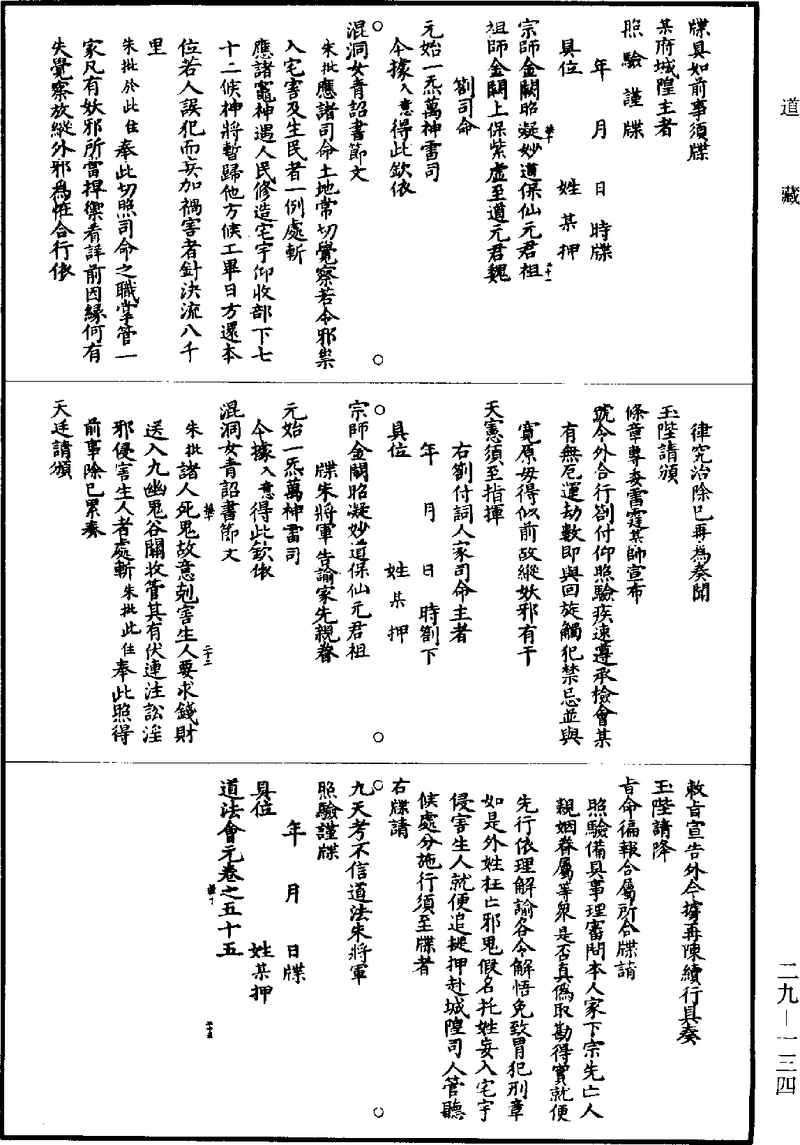 道藏
牒具如前事須牒
某府城隍主者
照驗謹牒
年　月　日　時牒
具位　姓　某　押
宗師金闕昭凝妙道保仙元君祖
祖師金闕上保紫虛至道元君魏
劉司命
元始一炁萬神雷司
今據入意得此欽依
混洞女青詔書節文
朱批應諸司命土地常切覺察若令邪祟
入宅害及生民者一例處斬
應諸竈神遇人民修造宅宇仰收部下七
十二候神將暫歸他方候工畢日方還本
位若人誤犯而妄加禍害者針決流八千
里
朱批於此住奉此切照司命之職掌管一
家凡有妖邪所當捍禦看詳前因緣何有
失覺察放縱外邪為恠合行依
律究治除已再為奏聞
玉陛請頒
條章尊委雷霆某師宣布
號令外合行劄付仰照驗疾速遵承撿會某
有無厄運劫數即與回旋觸犯禁忌並與
寬原毋得似前故縱妖邪有干
天憲須至指揮
右劄付詞人家司命主者
年　月　日　時劄下
具位　姓　某　押
宗師金闕昭凝妙道保仙元君祖
牒朱將軍告諭家先親眷
元始一炁萬神雷司
今據入意得此欽依
混洞女青詔書節文
朱批諸人死鬼故意剋害生人要求錢財
送入九幽鬼谷關收管其有伏連注訟淫
邪侵害生人者處斬朱批此住奉此照得
前事除已累奏
天廷請頒
敕旨宣告外今據再陳續行具奏
玉陛請降
旨命徧報合屬所合牒請
照驗備具事理審問本人家下宗先亡人
親姻眷屬等衆是否真僞取勘得實就便
先行依理解諭各令解悟免致冒犯刑章
如是外姓枉亡邪鬼假名托姓妄入宅宇
侵害生人就便追捉押赴城隍司人管聽
候處分施行須至牒者
右牒請
九天考不信道法朱將軍
照驗謹牒
年　月　日牒
具位　姓某押
道法會元卷之五十五
二九－一三四